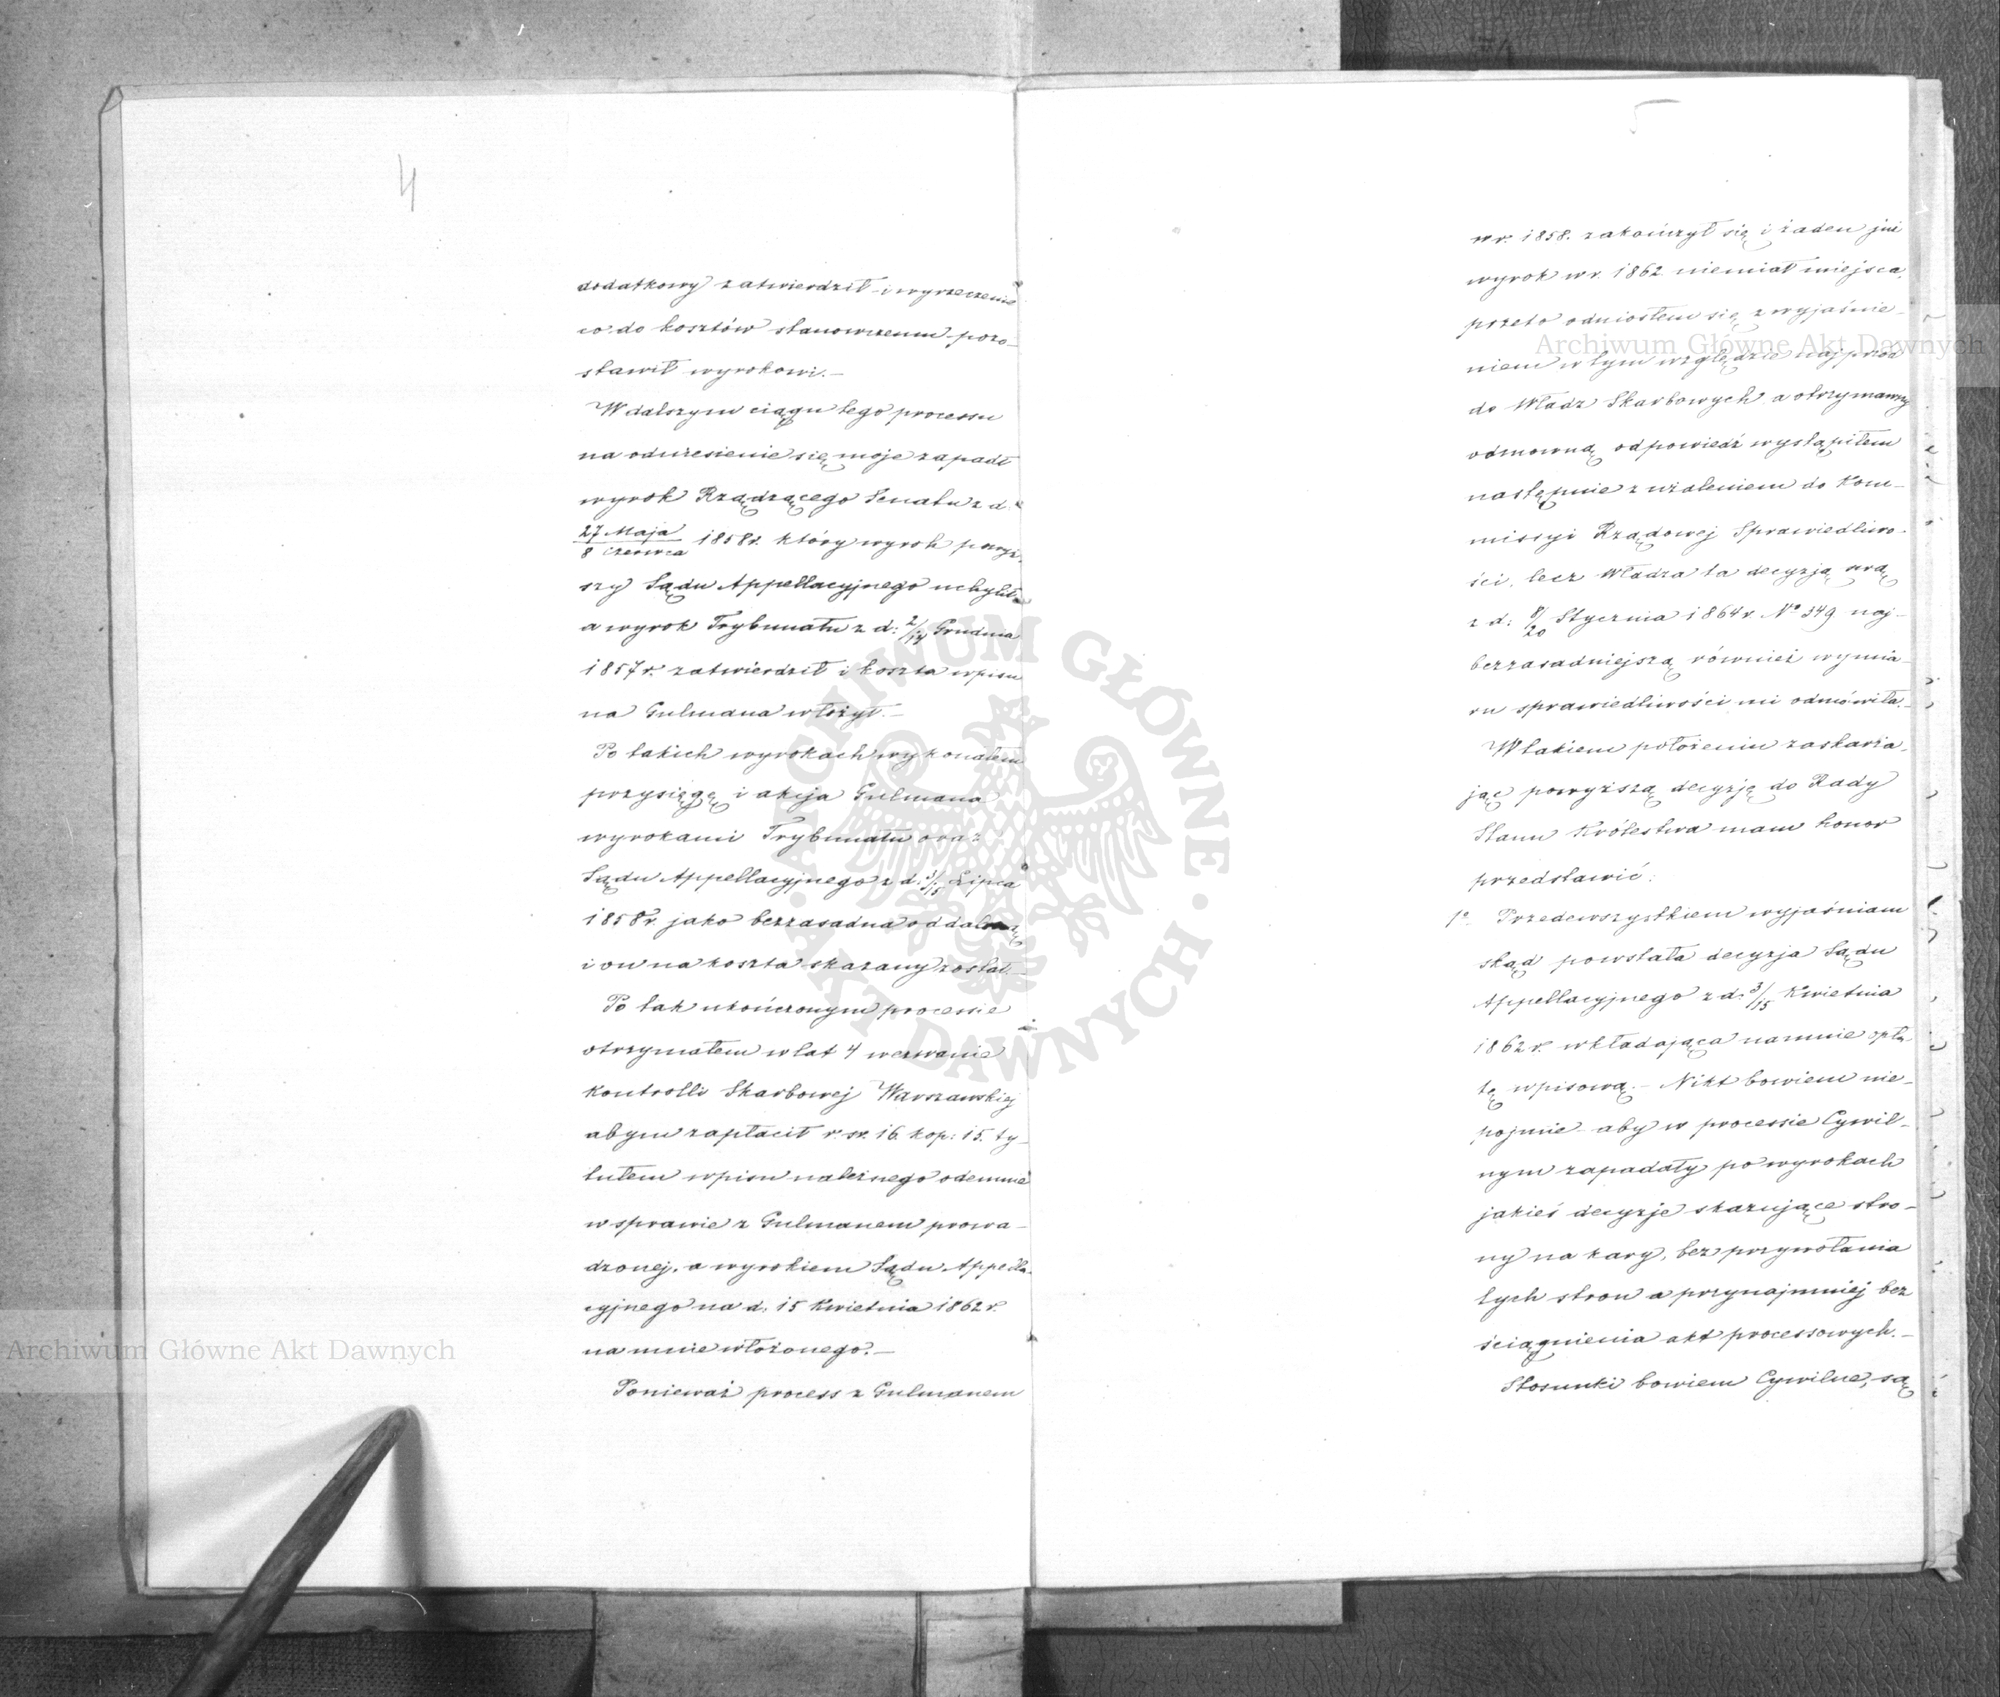 4
dodatkowy zatwierdził i wyrzeczenie
co do kosztów stanowczemu pozo-
stawił wyrokowi.—
W dalszym ciągu tego processu
na odniesienie się moje zapadł
wyrok Rządzącego Senatu z d.
27 Maja
8 Czerwca 1858 r. który wyrok powyż-
szy Sądu Appellacyjnego uchylił
a wyrok Trybunału z d: 2/14 Grudnia
1857 r. zatwierdził i koszta wpisu
na Gulmana włożył.—
Po takich wyrokach wykonałem
przysięgę i akcja Gulmana
wyrokami Trybunału oraz
Sądu Appellacyjnego z d. 3/15 Lipca
1858 r. jako bezzasadna oddaloną
i on na koszta skazany został.—
Po tak ukończonym processie
otrzymałem w lat 4 wezwanie
Kontrolli Skarbowej Warszawskiej
abym zapłacił r. sr. 16 kop: 15. ty-
tułem wpisu należnego odemnie
w sprawie z Gulmanem prowa-
dzonej, a wyrokiem Sądu Appella-
cyjnego na d. 15 Kwietnia 1862 r.
na mnie włożonego.—
Ponieważ process z Gulmanem
5
w r. 1858. zakończył się i żaden już
wyrok w r. 1862 niemiał miejsca,
przeto odniosłem się z wyjaśnie-
niem w tym względzie najprzód
do Władz Skarbowych a otrzymawszy
odmowną odpowiedź wystąpiłem
następnie z użaleniem do Kom-
missyi Rządowej Sprawiedliwo-
ści, lecz Władza ta decyzją swą
z d: 8/20 Stycznia 1864 r. No 349 naj-
bezzasadniejszą również wymia-
ru sprawiedliwości mi odmówiła.—
W takiem położeniu zaskarża-
jąc powyższą decyzją do Rady
Stanu Królestwa mam honor
przedstawić:
1o. Przedewszystkiem wyjaśniam
skąd powstała decyzja Sądu
Appellacyjnego z d: 3/15 Kwietnia
1862 r. wkładająca na mnie opła-
tę wpisową.— Nikt bowiem nie-
pojmie aby w processie Cywil-
nym zapadały po wyrokach
jakieś decyzje skazujące stro-
ny na kary, bez przywołania
tych stron a przynajmniej bez
ściągnienia akt processowych.—
Stosunki bowiem Cywilne, są
Archiwum Główne Akt Dawnych
Archiwum Główne Akt Dawnych
ARCHIWUM GŁÓWNE · AKT DAWNYCH ·